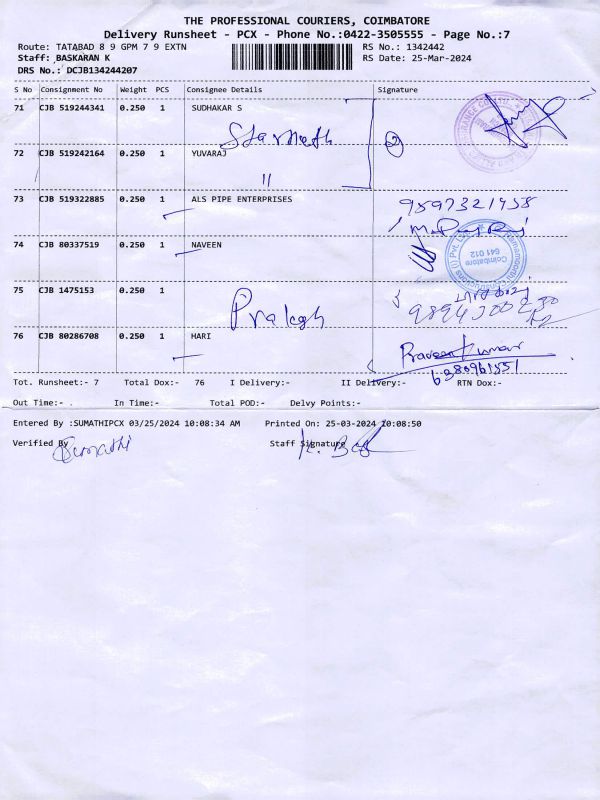 THE PROFESSIONAL COURIERS, COIMBATORE
Delivery Runsheet - PCX - Phone No.:0422-3505555 - Page No.:7
Route: TATABAD 8 9 GPM 7 9 EXTN RS No.: 1342442
Staff: BASKARAN K RS Date: 25-Mar-2024
DRS No.: DCJB134244207
S No Consignment No Weight PCS Consignee Details Signature
71 CJB 519244341 0.250 1 SUDHAKAR S
72 CJB 519242164 0.250 1 YUVARAJ
②
11
73 CJB 519322885 0.250 1 ALS PIPE ENTERPRISES
74 CJB 80337519 0.250 1 NAVEEN
Coimbatore
641 012
75 CJB 1475153 0.250 1
76 CJB 80286708 0.250 1 HARI
Praveen Kumar
6380961551
Tot. Runsheet:- 7 Total Dox:- 76 I Delivery:- II Delivery:- RTN Dox:-
Out Time:- . In Time:- Total POD:- Delvy Points:-
Entered By :SUMATHIPCX 03/25/2024 10:08:34 AM Printed On: 25-03-2024 10:08:50
Verified By Sumathi Staff Signature